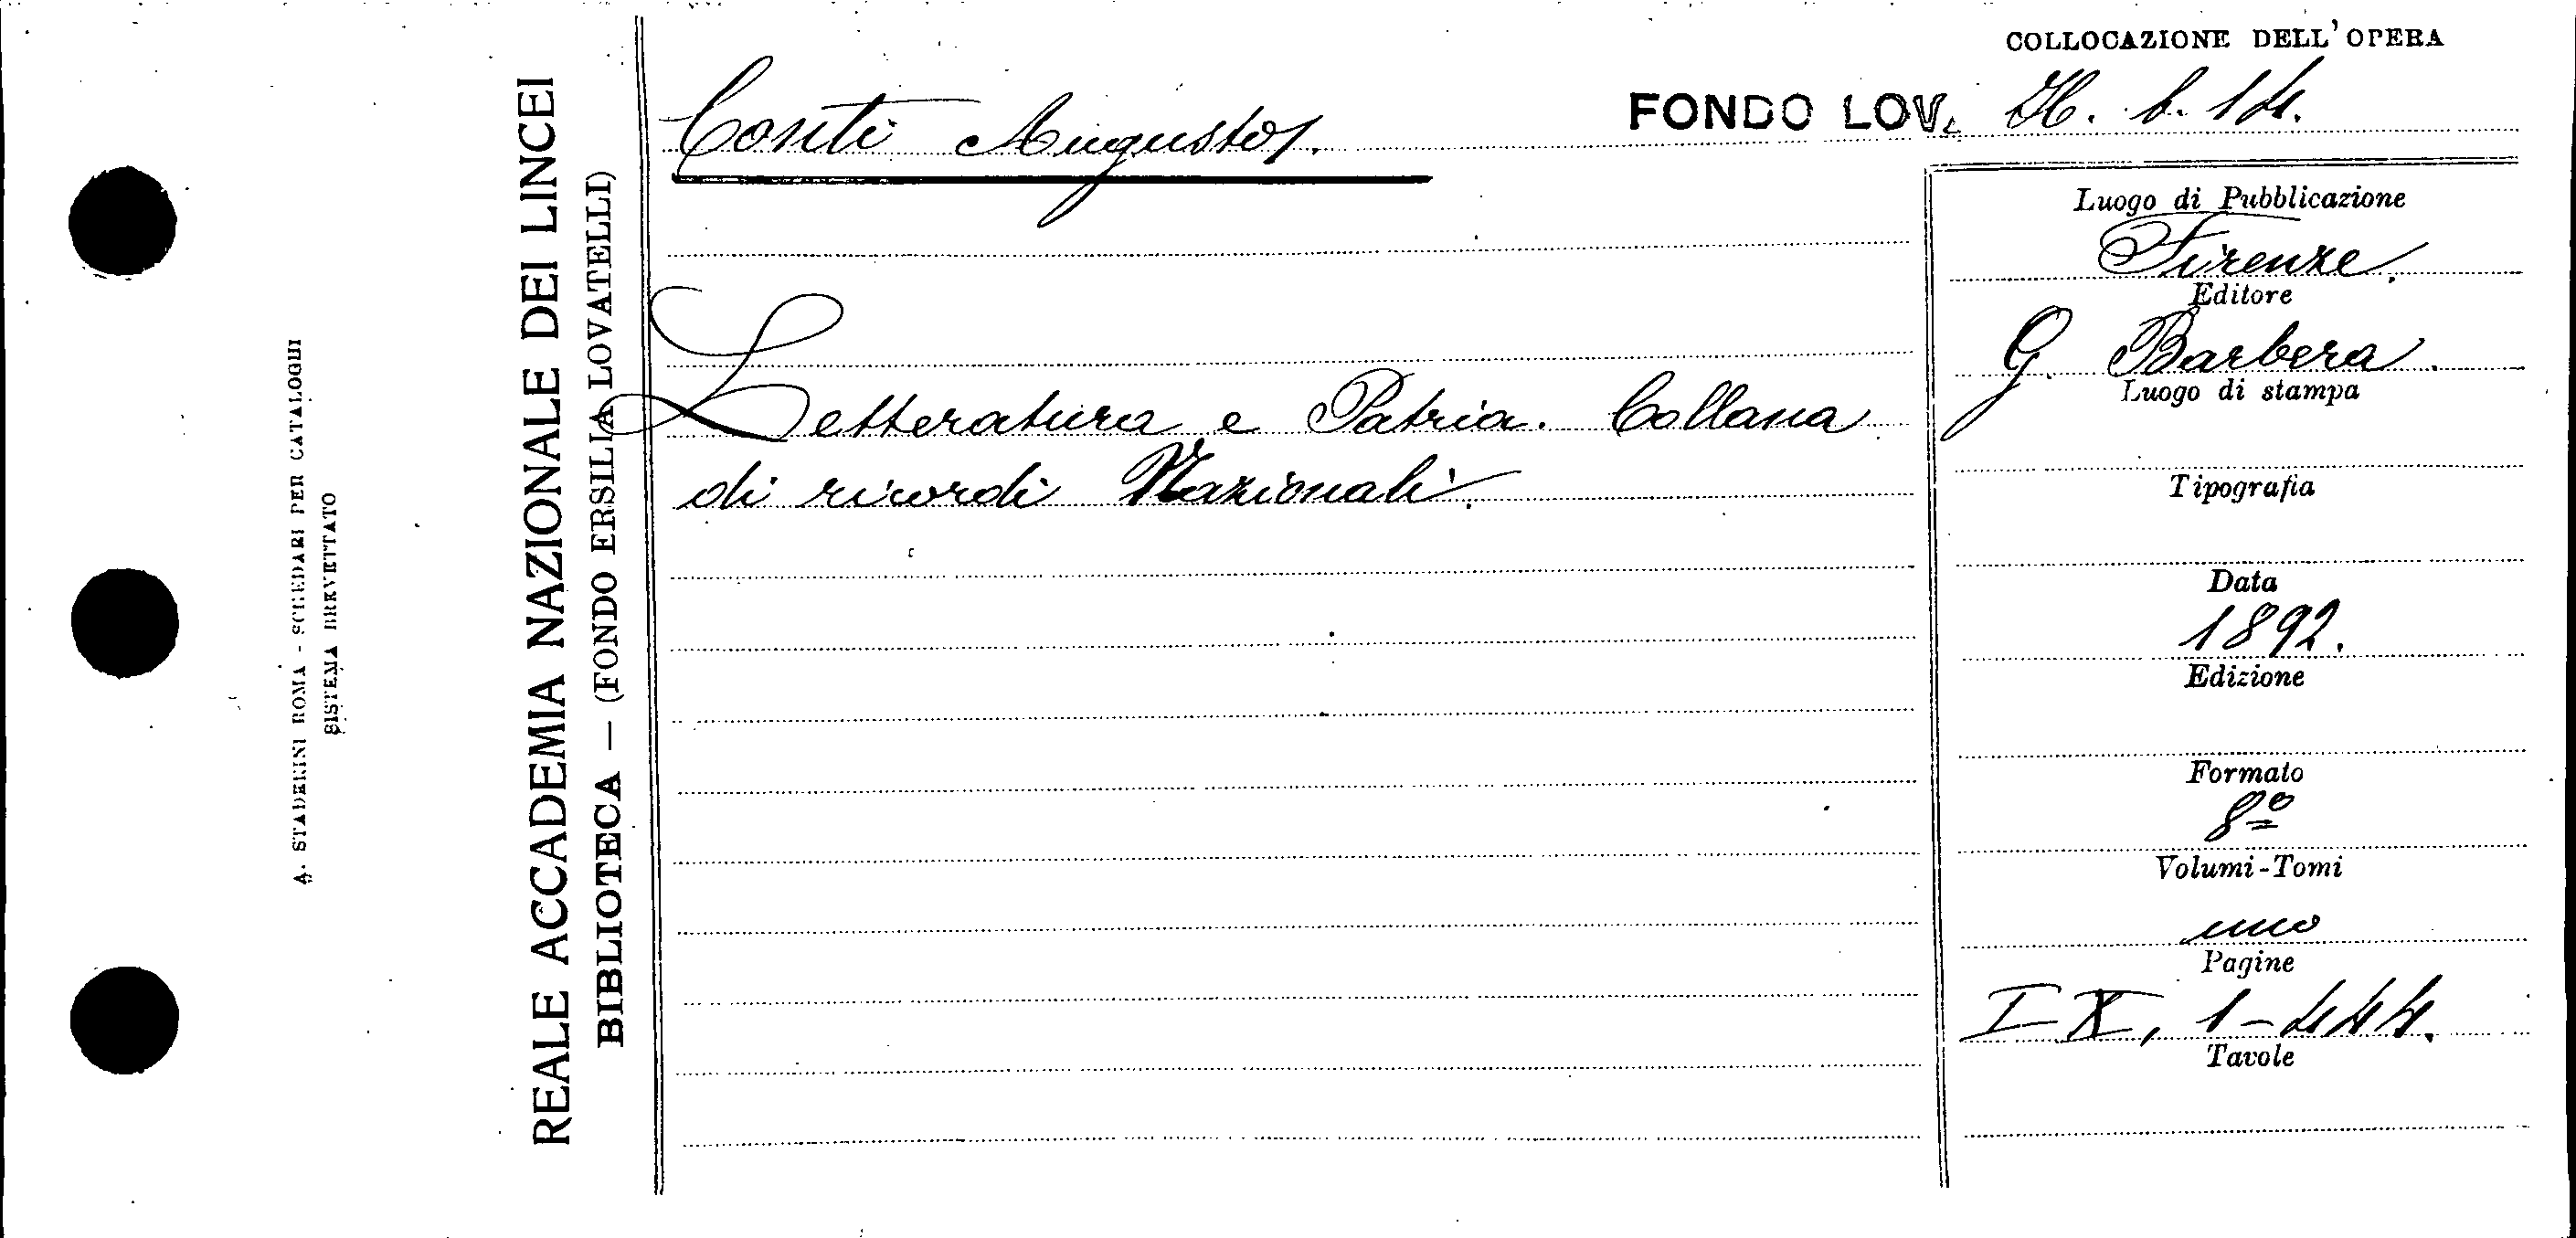 COLLOCAZIONE DELL'OPERA
FONDO LOV. H. b. 14.
Conti Augusto.
Letteratura e Patria. Collana
di ricordi Nazionali.
Luogo di Pubblicazione
Firenze.
Editore
G. Barbera.
Luogo di stampa
Tipografia
Data
1892.
Edizione
Formato
8º
Volumi-Tomi
uno
Pagine
I-X, 1-444.
Tavole
REALE ACCADEMIA NAZIONALE DEI LINCEI
BIBLIOTECA — (FONDO ERSILIA LOVATELLI)
A. STADERINI ROMA - SCHEDARI PER CATALOGHI
SISTEMA BREVETTATO